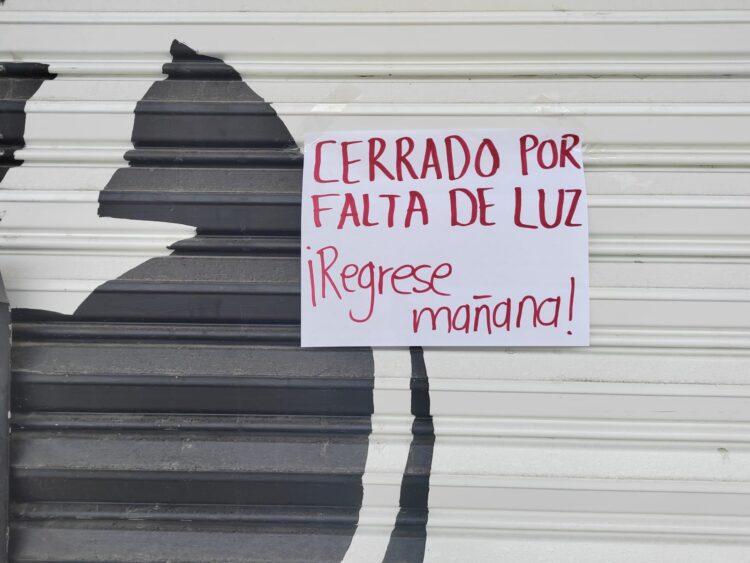 CERRADO POR
FALTA DE LUZ
¡Regrese
mañana!